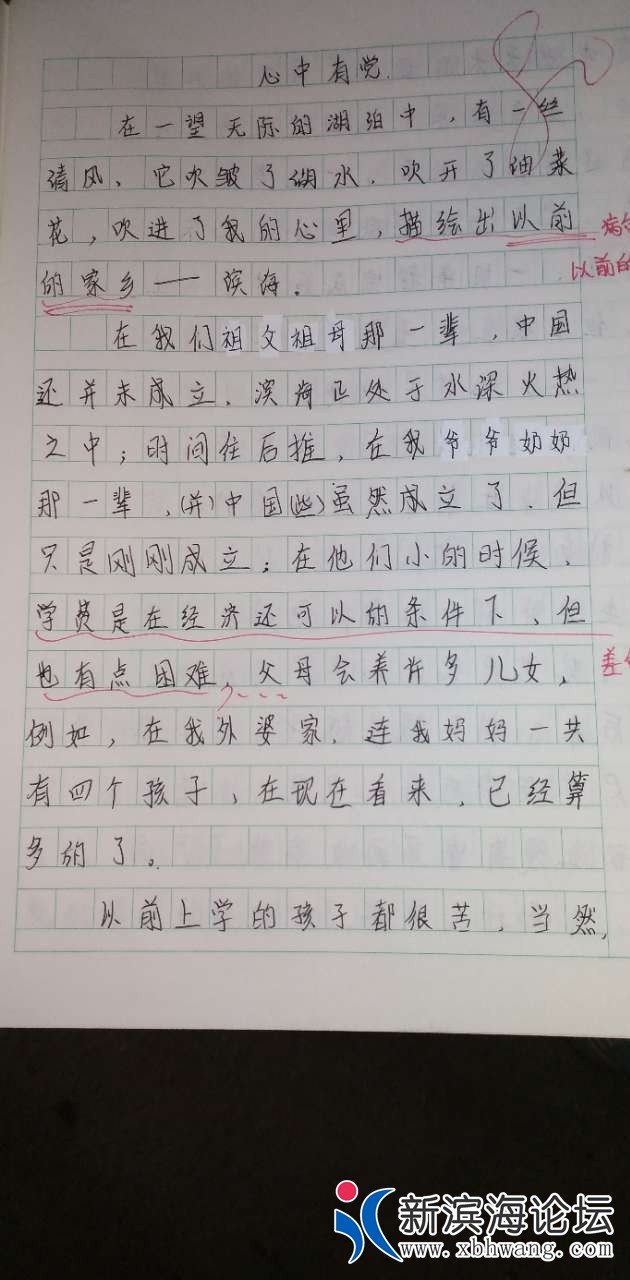 心中有党
在一望无际的湖泊中，有一丝
清风，它吹皱了湖水，吹开了油菜
花，吹进了我的心里，描绘出以前
病句
的家乡——滨海。
以前的
在我们祖父祖母那一辈，中国
还并未成立，滨海正处于水深火热
之中；时间往后推，在我爷爷奶奶
那一辈，(并)中国(些)虽然成立了，但
只是刚刚成立；在他们小的时候，
学费是在经济还可以的条件下，但
也有点困难，父母会养许多儿女，
例如，在我外婆家，连我妈妈一共
有四个孩子，在现在看来，已经算
多的了。
以前上学的孩子都很苦，当然，
新滨海论坛
www.xbhwang.com